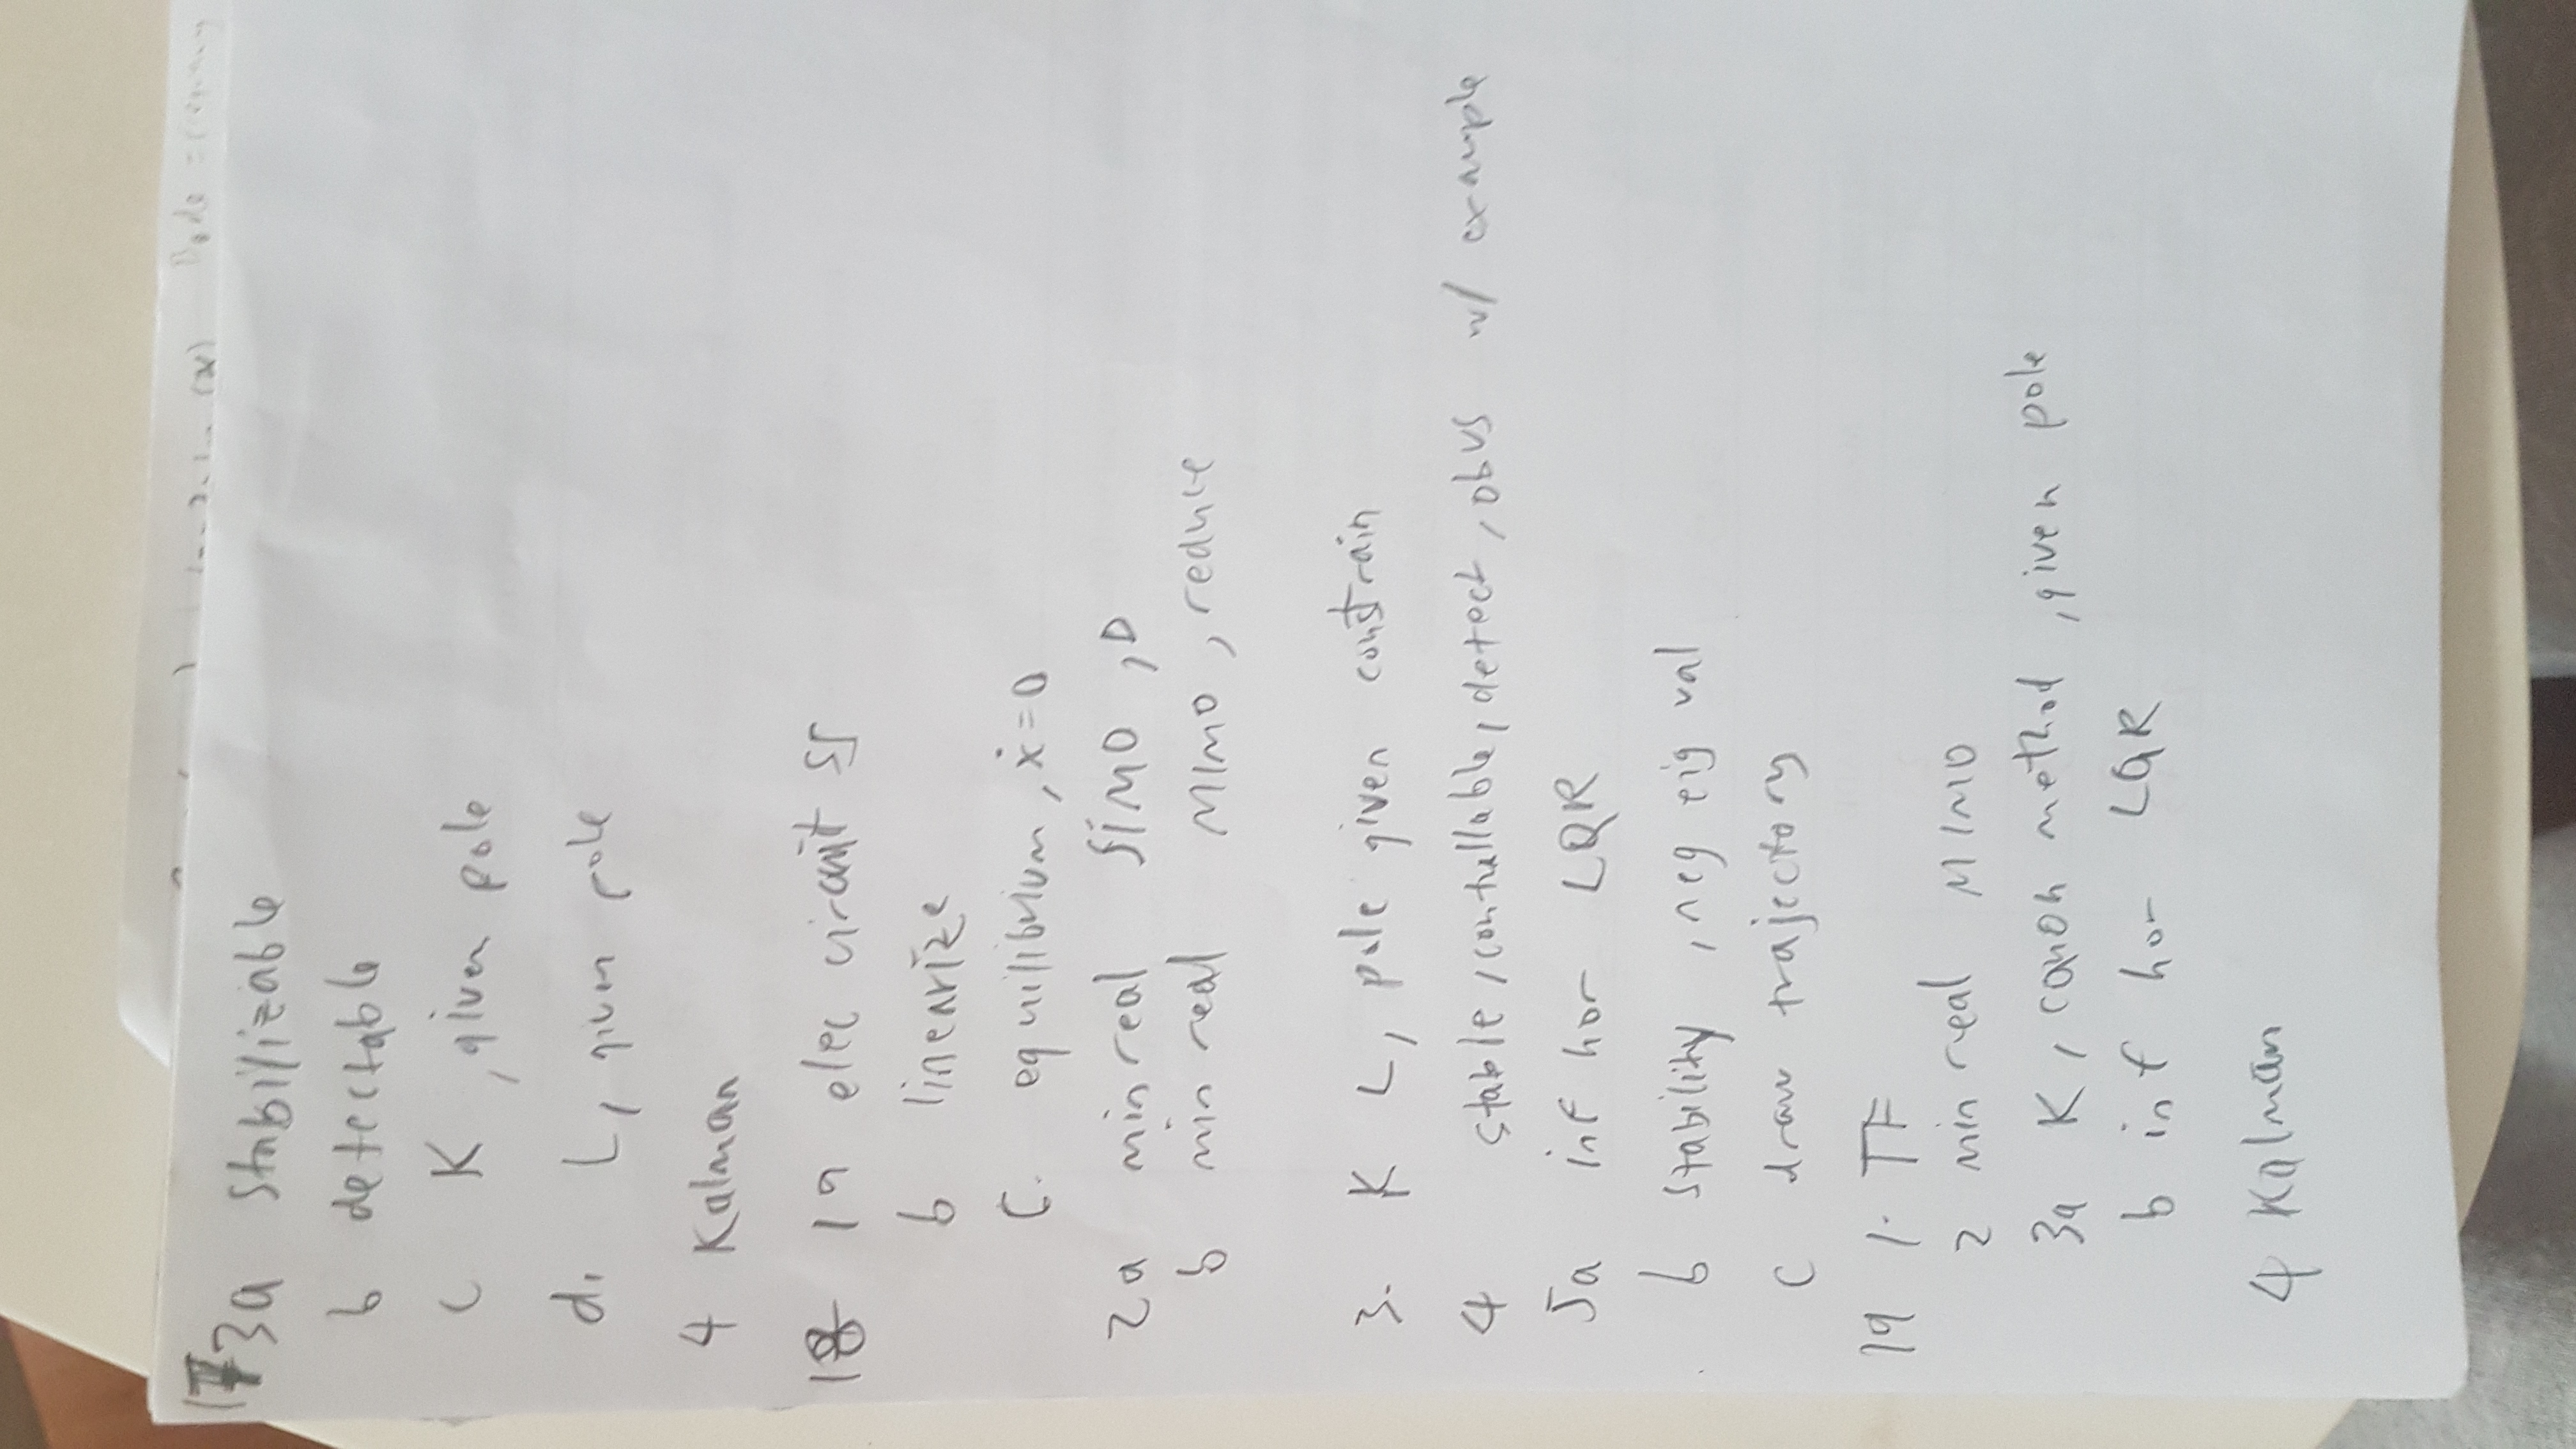 (x) Bode =
17 3a stabilizable
b detectable
c K, given pole
d. L, given pole
4 Kalman
18 1a elec circuit ss
b linearize
c. equilibrium, ẋ=0
2a min real SIMO, D
b min real MIMO, reduce
3. K L, pole given constrain
4 stable, controllable, detect, obvs w/ example
5a inf hor LQR
b stability, neg eig val
c draw trajectory
19 1. TF
2 min real MIMO
3a K, canon method, given pole
b inf hor LQR
4 Kalman